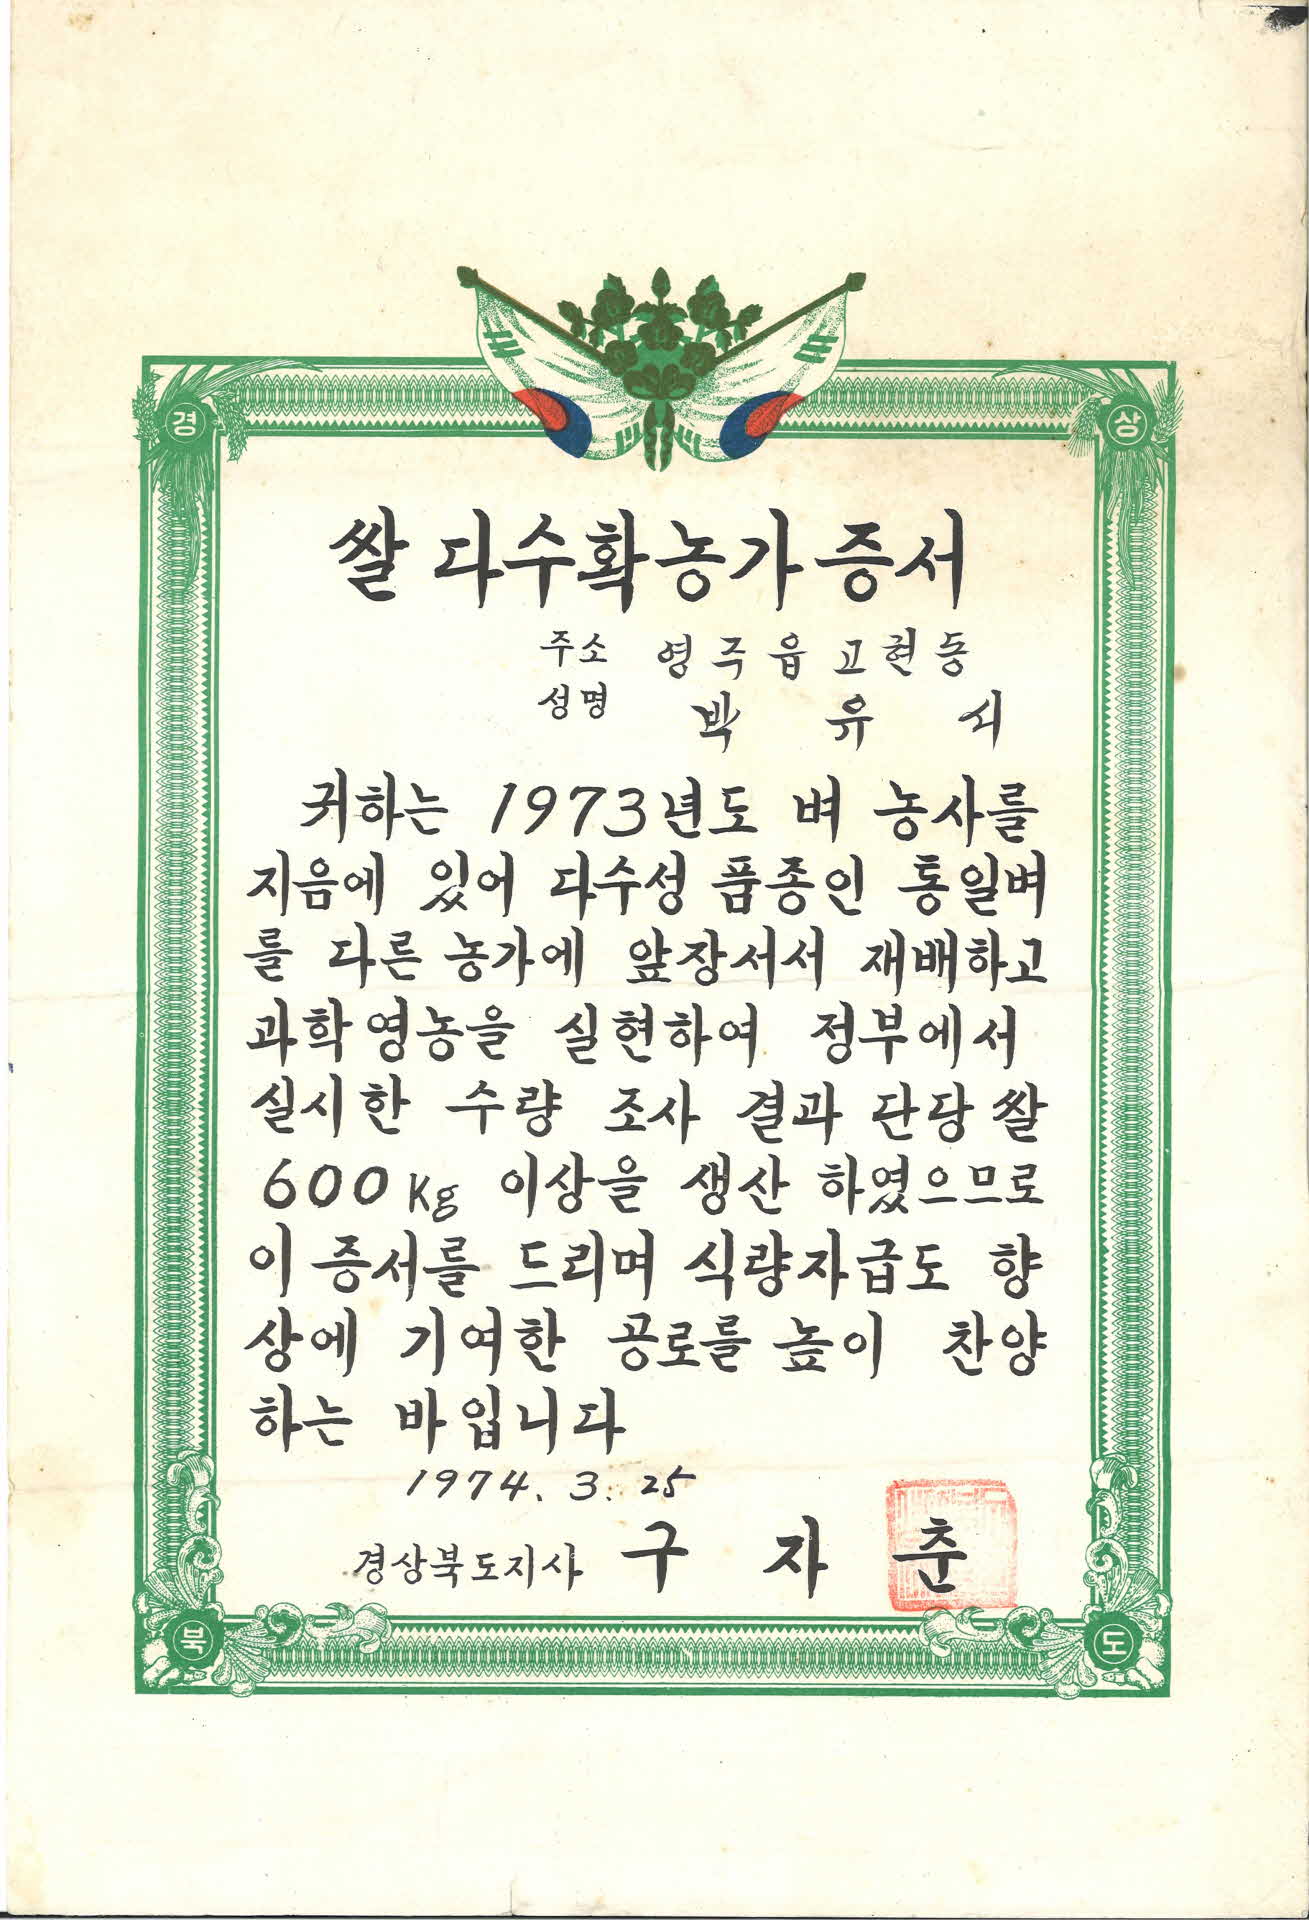 경 상
쌀 다수확농가 증서
주소 영주읍 고현동
성명 박유서
귀하는 1973년도 벼 농사를
지음에 있어 다수성 품종인 통일벼
를 다른 농가에 앞장서서 재배하고
과학영농을 실현하여 정부에서
실시한 수량 조사 결과 단당 쌀
600Kg 이상을 생산 하였으므로
이 증서를 드리며 식량자급도 향
상에 기여한 공로를 높이 찬양
하는 바입니다
1974. 3. 25
경상북도지사 구자춘
북 도